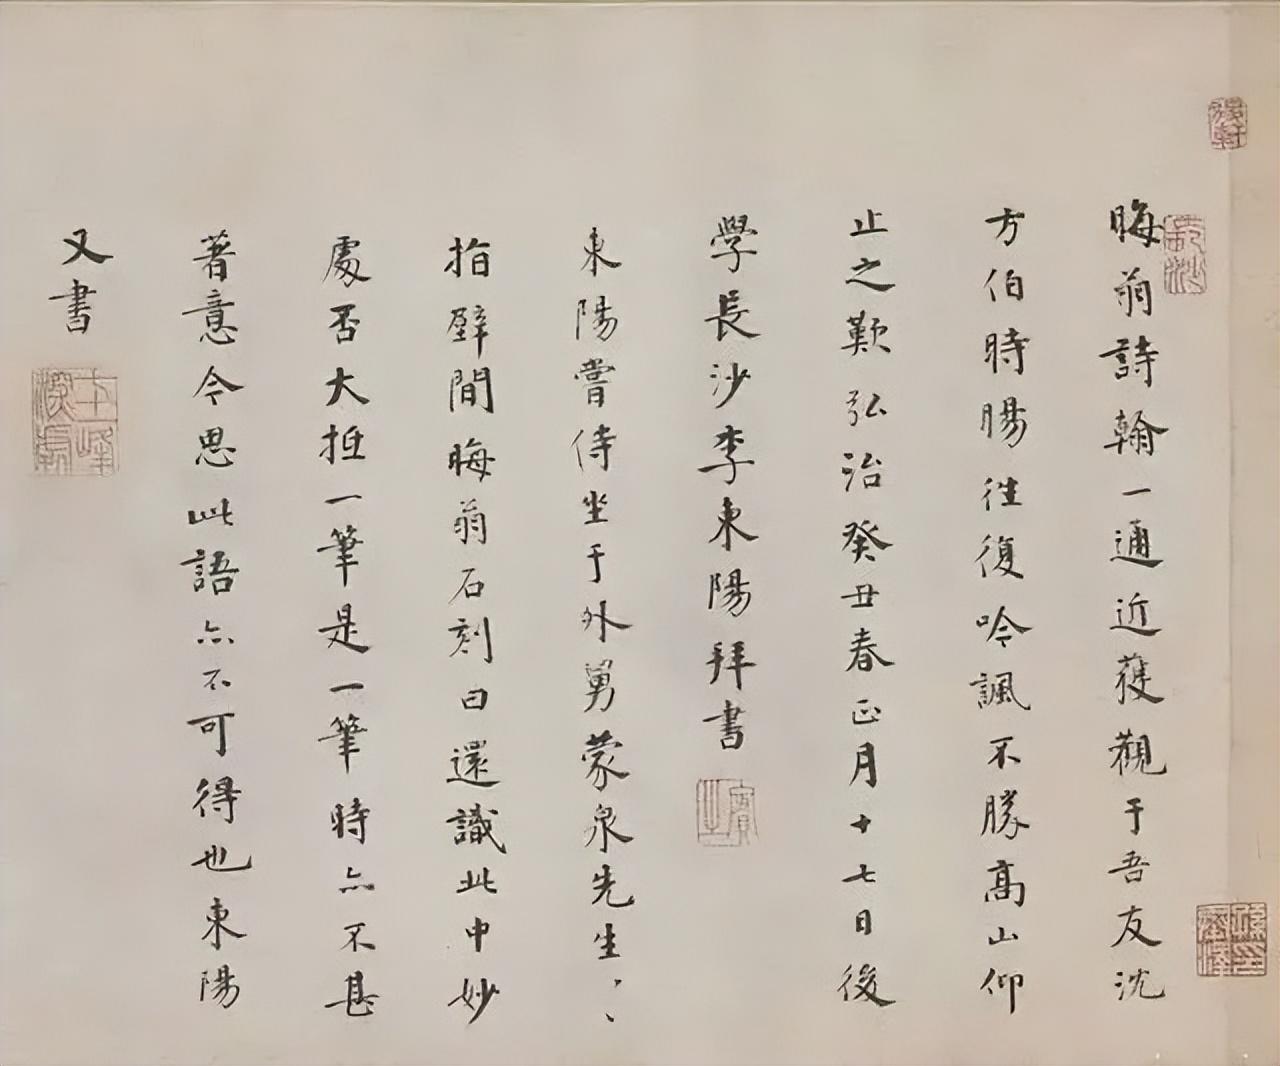 晦翁詩翰一通近獲觀于吾友沈
方伯時暘往復吟諷不勝高山仰
止之歎弘治癸丑春正月十七日後
學長沙李東陽拜書
東陽嘗侍坐于外舅蒙泉先生〻
指壁間晦翁石刻曰還識此中妙
處否大抵一筆是一筆時亦不甚
著意今思此語亦不可得也東陽
又書